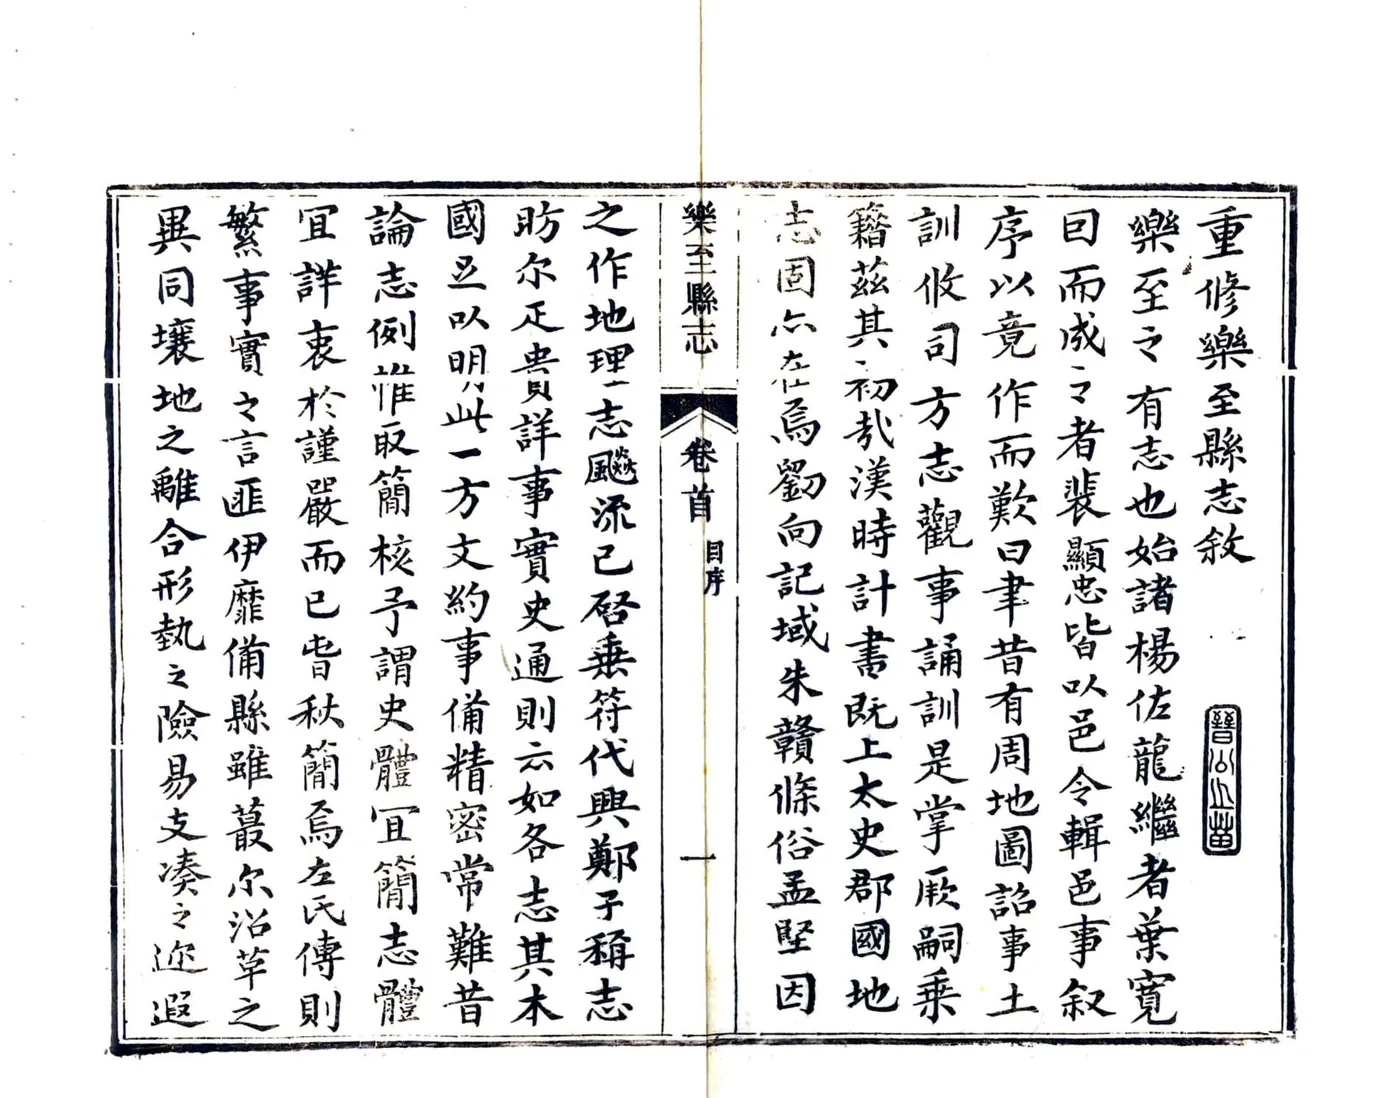 重修樂至縣志敘
樂至之有志也始諸楊佐龍繼者葉寬
曰而成之者裴顯忠皆以邑令輯邑事叙
序以竟作而歎曰聿昔有周地圖詔事土
訓攸司方志觀事誦訓是掌厥嗣乘
籍茲其初哉漢時計書既上太史郡國地
志固亦在焉劉向記域朱贛條俗孟堅因
樂至縣志
卷首
目序
一
之作地理志飈流已啓垂符代興鄭子稱志
昉尔疋貴詳事實史通則云如各志其本
國足以明此一方文約事備精密常難昔
論志例惟取簡核予謂史體宜簡志體
宜詳衷於謹嚴而已春秋簡焉左氏傳則
繁事實之言匪伊靡備縣雖蕞尔沿革之
異同壤地之離合形埶之險易支湊之迩遐